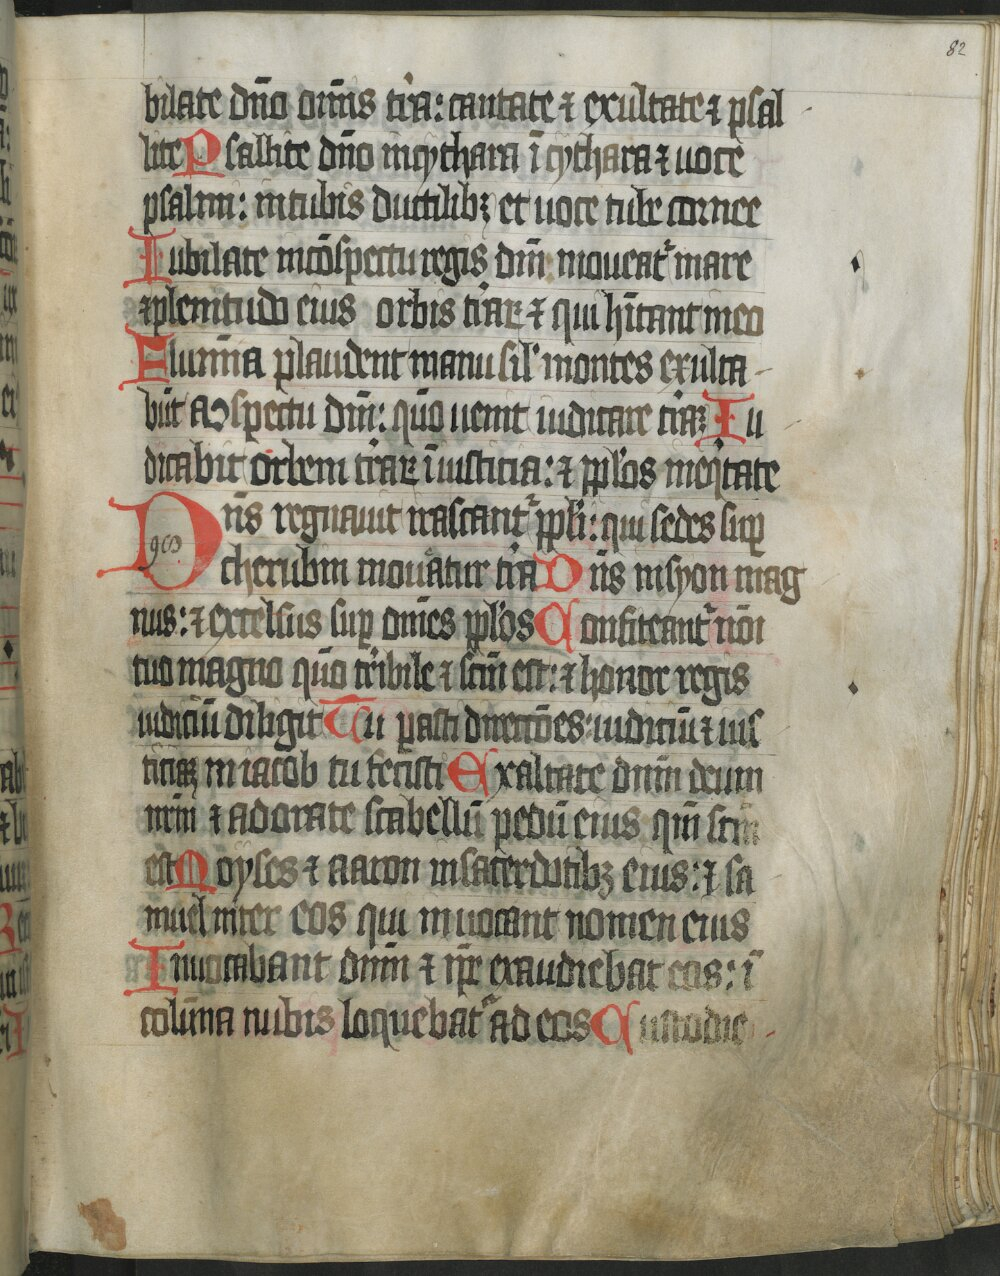 82
bilate dn̄o om̄is tr̄a: cantate ⁊ exultate ⁊ psal
lite Psallite dn̄o in cythara ī cythara ⁊ uoce
psalmi: in tubis ductilibꝫ et uoce tube cornee
Iubilate in cōspectu regis dn̄i moueatᷣ mare
⁊ plenitudo eius orbis tr̄aꝝ ⁊ qui hītant in eo
Flumīa plaudent manu sil' montes exulta
būt a ↄspectu dn̄i: qn̄o uenit iudicare tr̄aꝫ Iu
dicabit orbem tr̄aꝝ ī iusticia: ⁊ ppl'os
Dn̄s regnauit irascantᷣ ppl'i: qui sedes suꝑ
98
cherubin moueatur tr̄a Dn̄s in syon mag
nus: ⁊ excelsus suꝑ om̄es ppl'os Confiteantᷣ nōi
tuo magno qn̄o tr̄ibile ⁊ scm̄ est: ⁊ honor regis
iudiciū diligit Tu ꝑasti directōes: iudiciū ⁊ ius
ticiaꝫ in iacob tu fecisti Exaltate dn̄m deum
nr̄m ⁊ adorate scabellū pedū eius qm̄ scm̄
est Moyses ⁊ aaron in sacerdotibꝫ eius: ⁊ sa
muel inter eos qui inuocant nomen eius
Inuocabant dn̄m ⁊ ip̄e exaudiebat eos: ī
colūna nubis loquebatᷣ ad eos Custodie